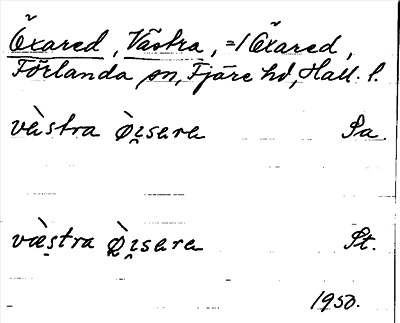 Öxared, Västra, =/ Öxared,
Förlanda sn, Fjäre hd, Hall. l.
västra Òisara Sa.
væstra Òisara St.
1950.